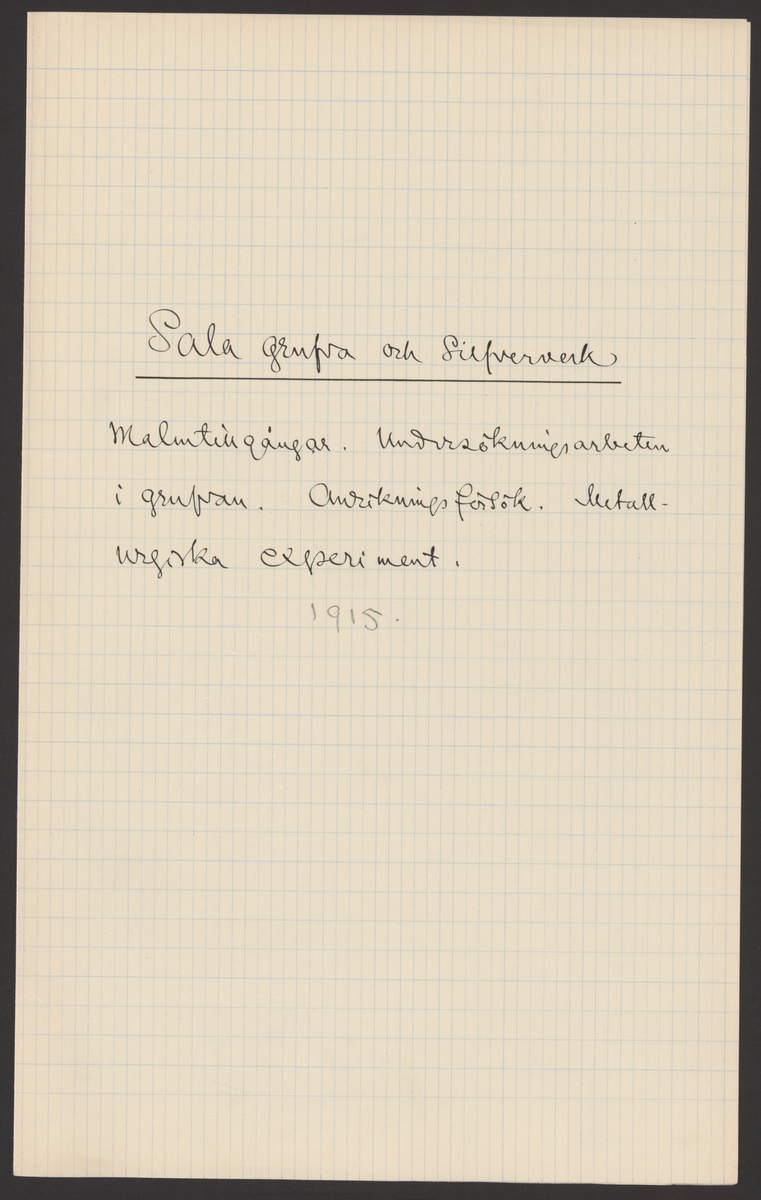 Sala grufva och Silfververk
Malmtillgångar. Undersökningsarbeten
i grufvan. Anrikningsförsök. Metall-
urgiska experiment.
1915.